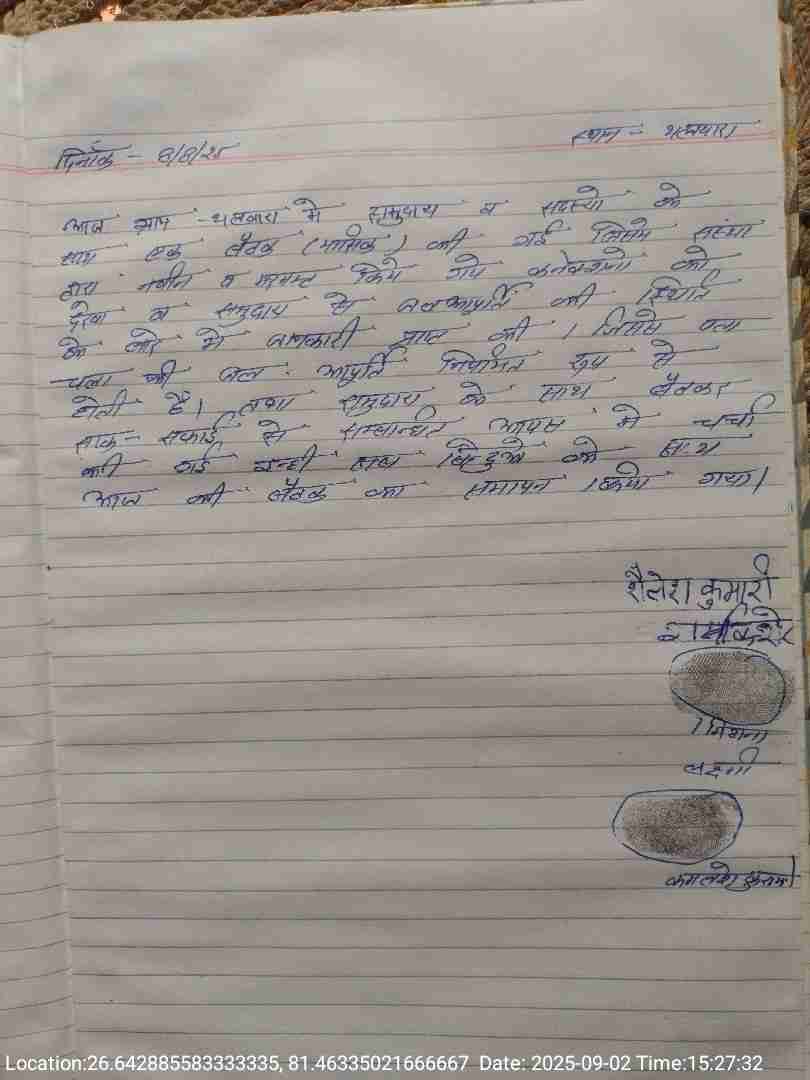 स्थान -
दिनाँक - 8/8/25
आज ग्राम - थलवारा मे समुदाय व सदस्यो के
साथ एक बैठक (मासिक) की गई जिसमे संस्था
द्वारा नवीन व किये गये कनेक्शनो को
देखा व समुदाय से जलआपूर्ति की स्थिति
के बारे मे जानकारी प्राप्त की । जिसमे पता
चला की जल आपूर्ति नियमित रूप से
होती है। तथा समुदाय के साथ बैठकर
साफ-सफाई से सम्बन्धित आपस मे चर्चा
की गई इन्ही बिन्दुओ के साथ
आज की बैठक का समापन किया गया।
शैलेश कुमारी
रामकिशोर
लक्ष्मी
Location:26.642885583333335, 81.46335021666667 Date: 2025-09-02 Time:15:27:32